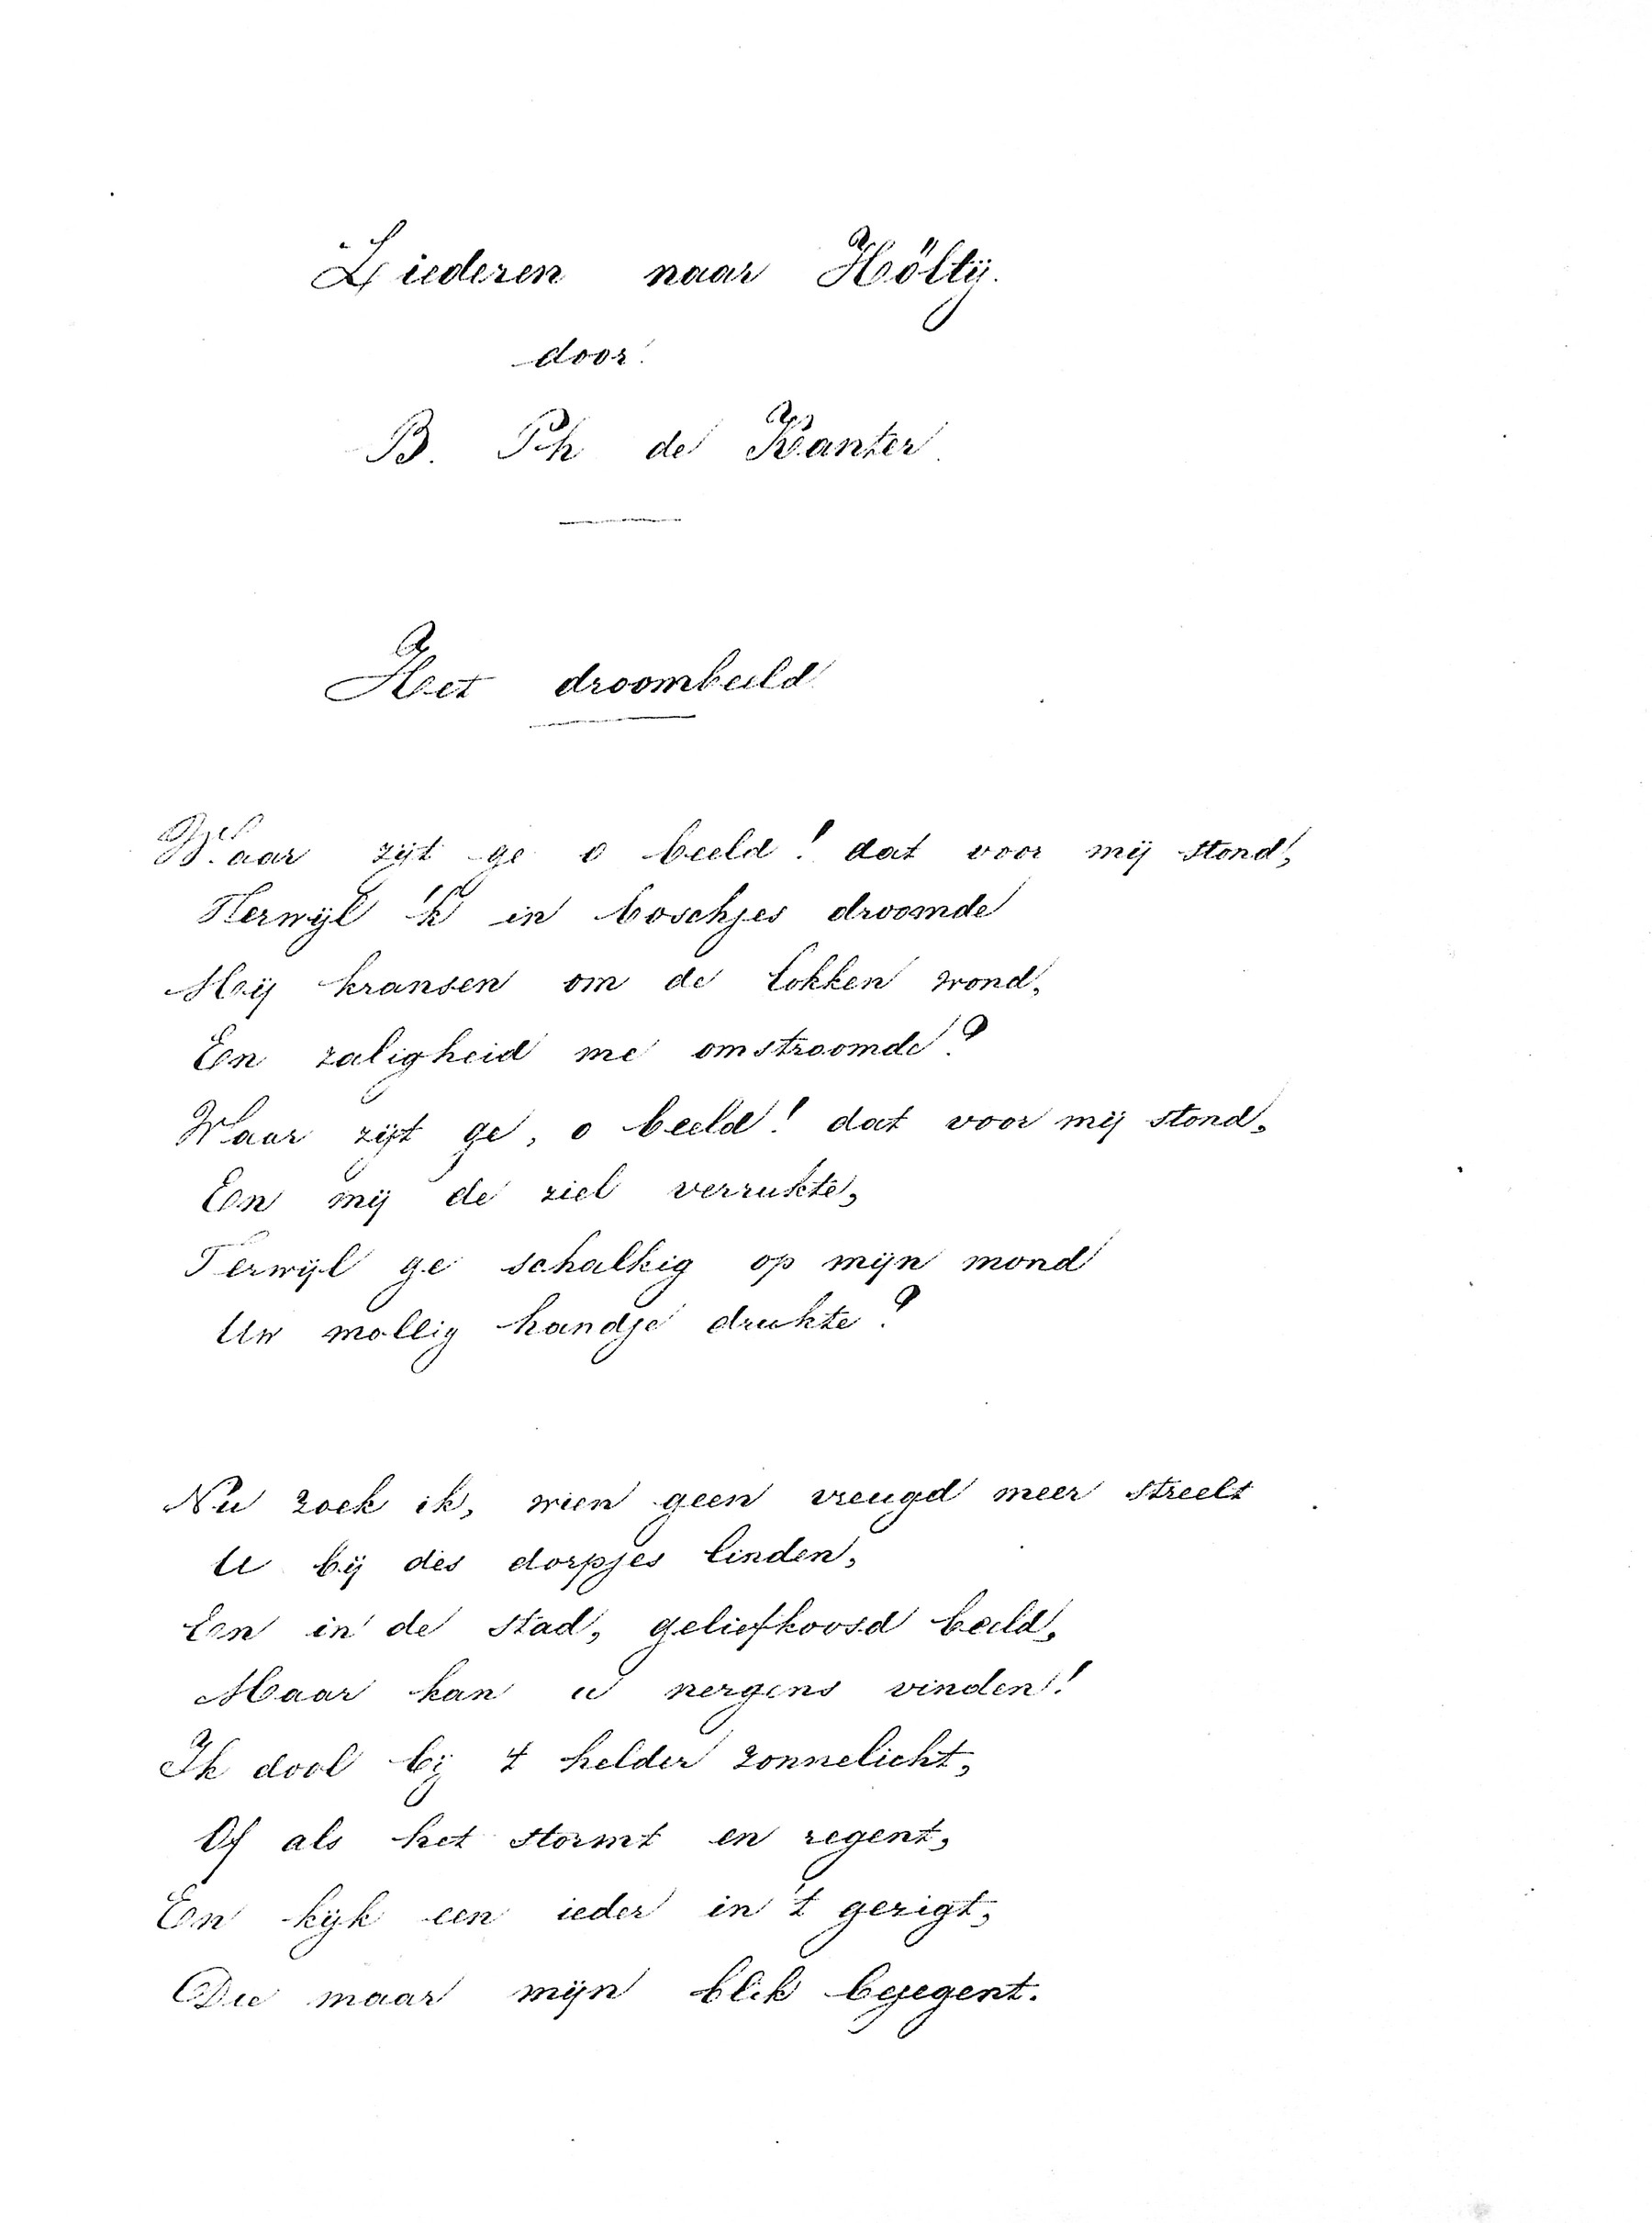 Liederen naar Höltij.
door
B. Ph de Kanter.
Het droombeeld
Waar zijt ge o beeld! dat voor mij stond,
Terwijl 'k in boschjes droomde
Mij kransen om de lokken wond,
En zaligheid me omstroomde?
Waar zijt ge, o beeld! dat voor mij stond,
En mij de ziel verrukte,
Terwijl ge schalkig op mijn mond
Uw mollig handje drukte?
Nu zoek ik, wien geen vreugd meer streelt
U bij des dorpjes linden,
En in de stad, geliefkoosd beeld,
Maar kan u nergens vinden!
Ik dool bij 't helder zonnelicht,
Of als het stormt en regent,
En kijk een ieder in 't gezigt,
Die maar mijn blik bejegent.